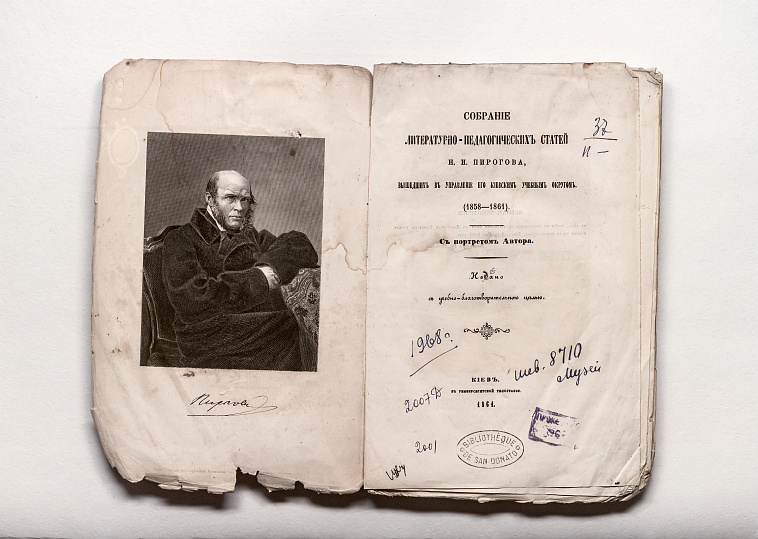 Пирогов
СОБРАНІЕ
ЛИТЕРАТУРНО-ПЕДАГОГИЧЕСКИХЪ СТАТЕЙ
Н. И. ПИРОГОВА,
ВЫШЕДШИХЪ ВЪ УПРАВЛЕНІЕ ЕГО КІЕВСКИМЪ УЧЕБНЫМЪ ОКРУГОМЪ.
(1858—1861).
Съ портретомъ Автора.
Издано
съ учебно-благотворительною цѣлью.
КІЕВЪ.
ВЪ УНИВЕРСИТЕТСКОЙ ТИПОГРАФІИ.
1861.
37
П —
1968 г
инв. 8710
Музей
2007
2001
BIBLIOTHÈQUE
DE SAN DONATO